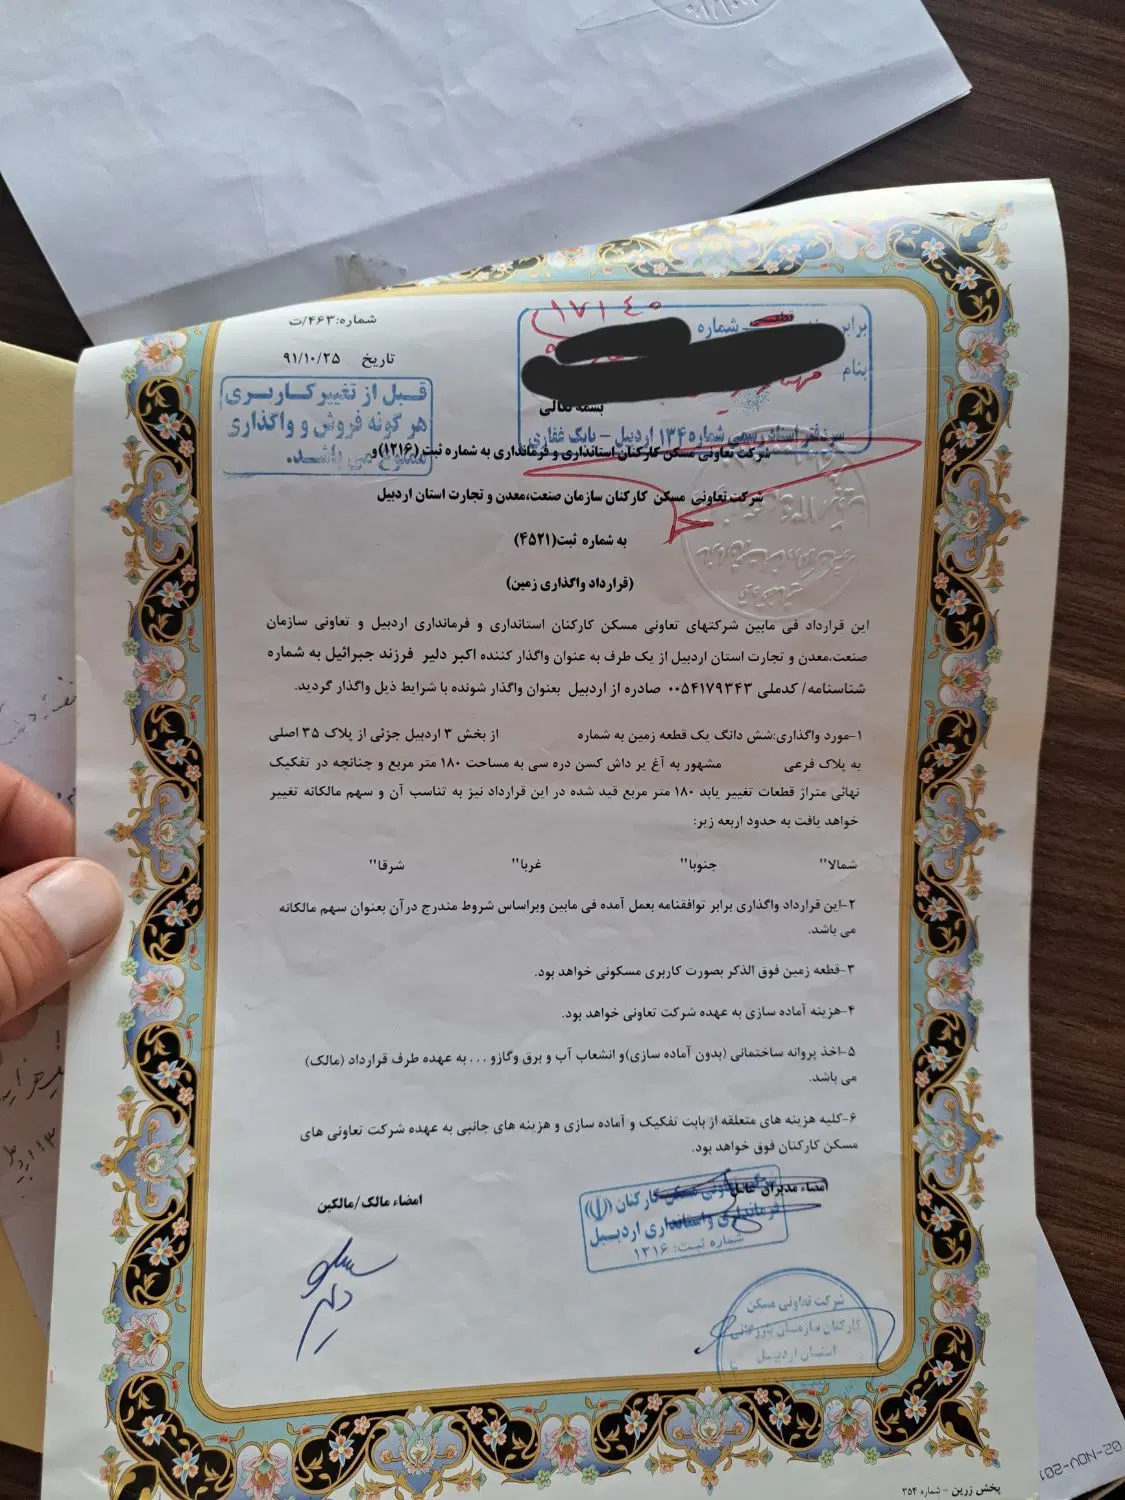 شماره:۴۶۳/ت
تاریخ ۹۱/۱۰/۲۵
۱۷۱۴۰
برابر
شماره
بنام
سردفتر اسناد رسمی شماره ۱۳۴ اردبیل - بابک غفاری
قبل از تغییر کاربری
هر گونه فروش و واگذاری
ممنوع می باشد.
بسمه تعالی
شرکت تعاونی مسکن کارکنان استانداری و فرمانداری به شماره ثبت (۱۲۱۶)و
شرکت تعاونی مسکن کارکنان سازمان صنعت،معدن و تجارت استان اردبیل
به شماره ثبت(۴۵۲۱)
(قرارداد واگذاری زمین)
این قرارداد فی مابین شرکتهای تعاونی مسکن کارکنان استانداری و فرمانداری اردبیل و تعاونی سازمان
صنعت،معدن و تجارت استان اردبیل از یک طرف به عنوان واگذار کننده اکبر دلیر فرزند جبرائیل به شماره
شناسنامه/ کدملی ۰۰۵۴۱۷۹۳۴۳ صادره از اردبیل بعنوان واگذار شونده با شرایط ذیل واگذار گردید.
۱-مورد واگذاری:شش دانگ یک قطعه زمین به شماره از بخش ۳ اردبیل جزئی از پلاک ۳۵ اصلی
به پلاک فرعی مشهور به آغ یر داش کسن دره سی به مساحت ۱۸۰ متر مربع و چنانچه در تفکیک
نهائی متراژ قطعات تغییر یابد ۱۸۰ متر مربع قید شده در این قرارداد نیز به تناسب آن و سهم مالکانه تغییر
خواهد یافت به حدود اربعه زیر:
شمالا" جنوبا" غربا" شرقا"
۲-این قرارداد واگذاری برابر توافقنامه بعمل آمده فی مابین وبراساس شروط مندرج درآن بعنوان سهم مالکانه
می باشد.
۳-قطعه زمین فوق الذکر بصورت کاربری مسکونی خواهد بود.
۴-هزینه آماده سازی به عهده شرکت تعاونی خواهد بود.
۵-اخذ پروانه ساختمانی (بدون آماده سازی)و انشعاب آب و برق وگازو ... به عهده طرف قرارداد (مالک)
می باشد.
۶-کلیه هزینه های متعلقه از بابت تفکیک و آماده سازی و هزینه های جانبی به عهده شرکت تعاونی های
مسکن کارکنان فوق خواهد بود.
امضاء مدیران عامل
امضاء مالک/مالکین
شرکت تعاونی مسکن کارکنان
فرمانداری و استانداری اردبیل
شماره ثبت: ۱۲۱۶
دلیر
شرکت تعاونی مسکن
کارکنان سازمان بازرگانی
استان اردبیل
پخش زرین - شماره ۳۵۴
02-NOV-201